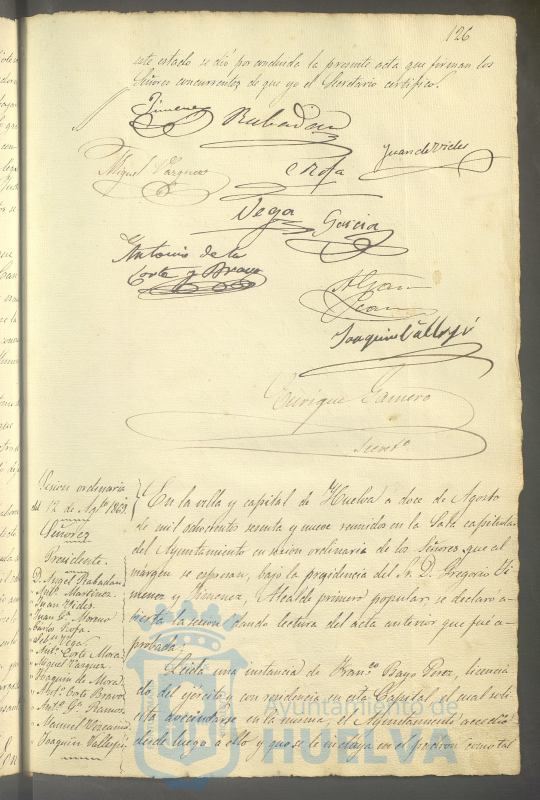 126
este estado se dió por concluida la presente acta que firman los
Señores concurrentes de que yo el Secretario certifico.
Jimenez
Rabadan
Juan de Vides
Miguel Vazquez
C Rofa
Vega
García
Antonio de la
Corte y Bravo
Joaquin Vallejo
Enrique Gamero
Secretº
Sesion ordinaria
del 12 de Agtº 1869
Señores
Presidente.
D. Angel Rabadan
" Antº Martinez
" Juan Vides
" Juan Gª Moreno
" Carlos Rofa
Vega
" Antº Corte Mora
" Miguel Vazquez
" Joaquin de Mora
" Antº Corte Bravo
" Antº Gª Ramos
" Manuel
" Joaquin Vallejo
En la villa y capital de Huelva a doce de Agosto
de mil ochocientos sesenta y nueve reunidos en la Sala capitular
del Ayuntamiento en sesion ordinaria de los Señores que al
margen se espresan, bajo la presidencia del Sr. D. Gregorio Ji-
menez y Jimenez, Alcalde primero popular se declaró a-
bierta la sesion dando lectura del acta anterior que fué a-
probada:
Leida una instancia de Franco Bayo Perez, licencia-
do del ejército y con residencia en esta Capital, el cual soli-
cita avecindarse en la misma, el Ayuntamiento accedió
desde luego a ello y que se le incluya en el padron como tal
Ayuntamiento de
HUELVA